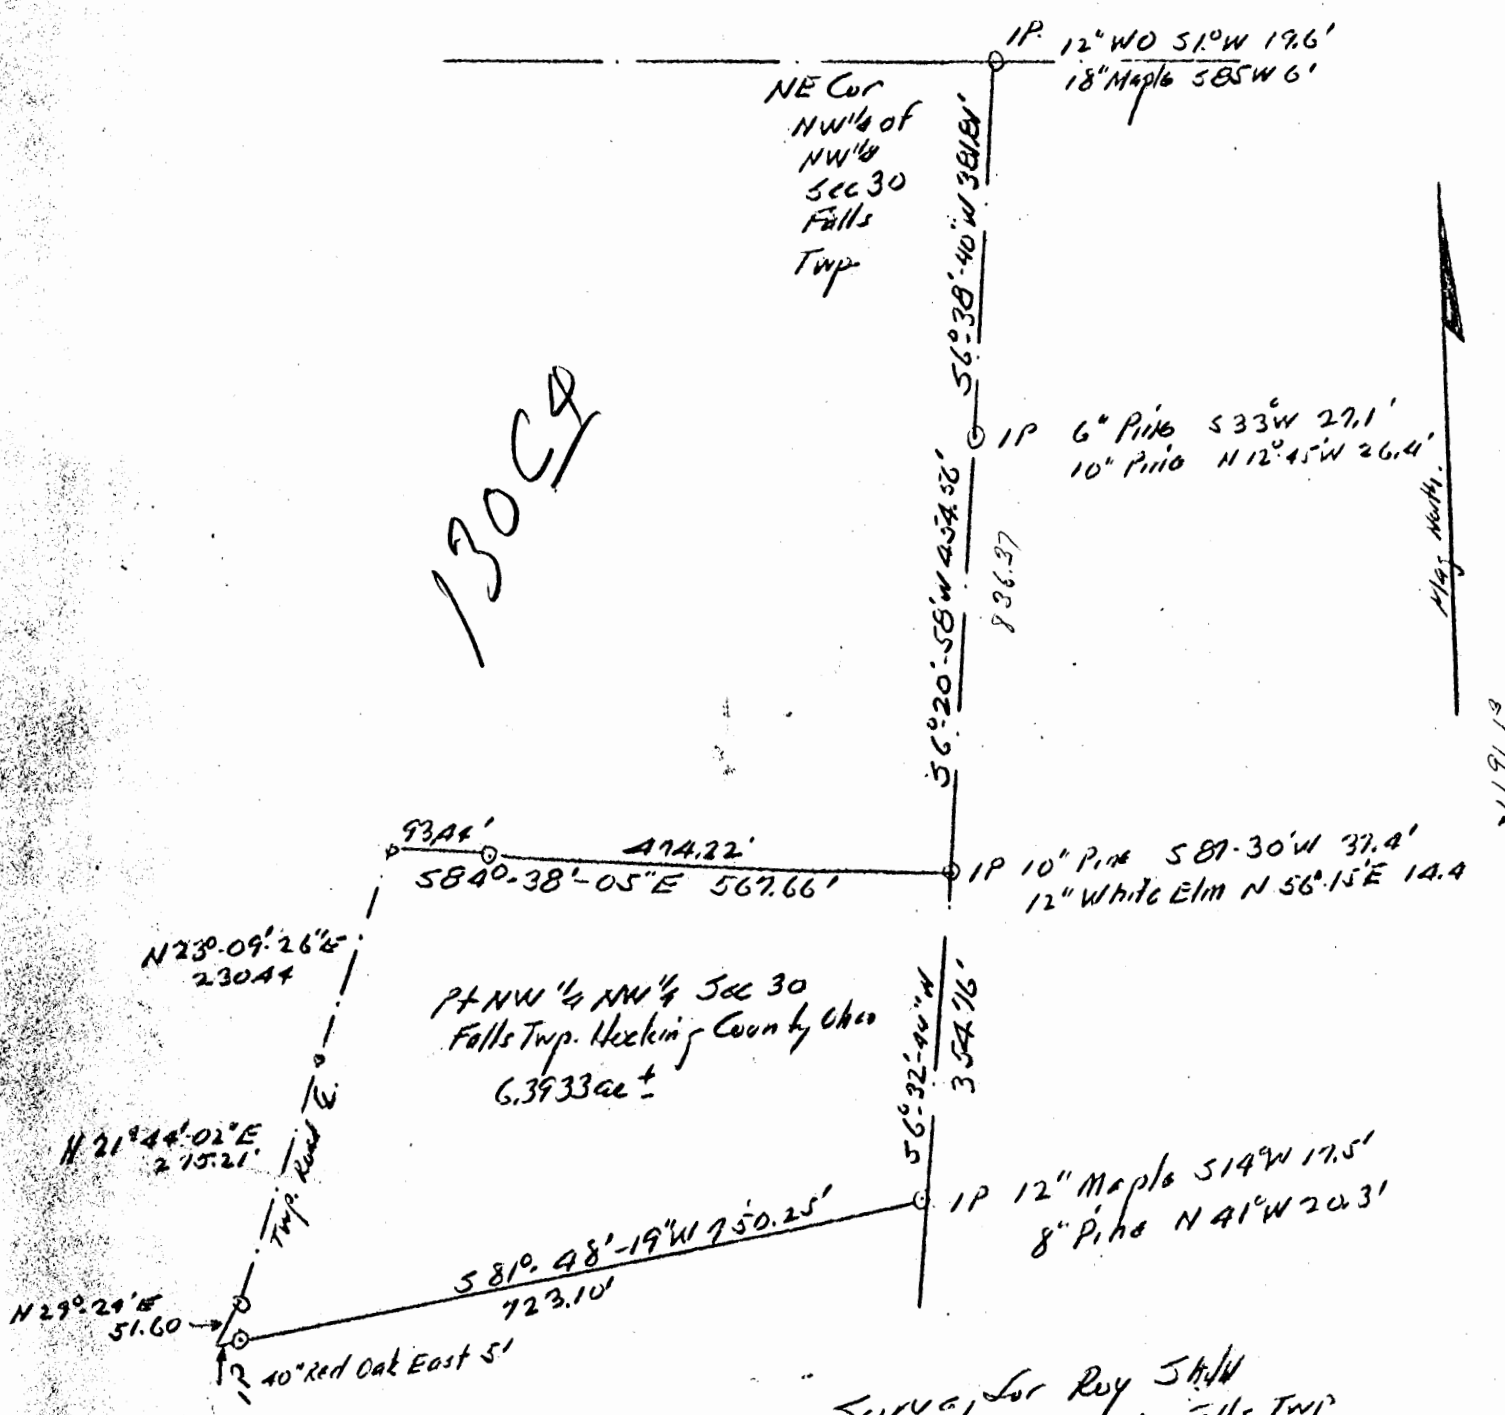 IP. 12" WO S1°W 19.6'
18" Maple S85W 6'
NE Cor
NW 1/4 of
NW 1/4
Sec 30
Falls
Twp
S6°-38'-40"W 381.81'
130 C9
IP 6" Pine S33°W 27.1'
10" Pine N12°45'W 26.4'
S6°-20'-58"W 454.56'
836.37
Mag North.
93.44'
474.22'
S84°-38'-05"E 567.66'
IP 10" Pine S87-30'W 37.4'
12" White Elm N56°15'E 14.4
N23°-09'-26"E
230.44
Pt NW 1/4 NW 1/4 Sec 30
Falls Twp. Hocking County Ohio
6.3933 ac ±
S6°-32'-44"W
354.76'
N21°44'-02"E
275.21'
Twp. Road
IP 12" Maple S14°W 17.5'
8" Pine N41°W 20.3'
S81°-48'-19"W 750.25'
723.10'
N29°-24'E
51.60
IP 40" Red Oak East 5'
Survey for Roy
Falls Twp